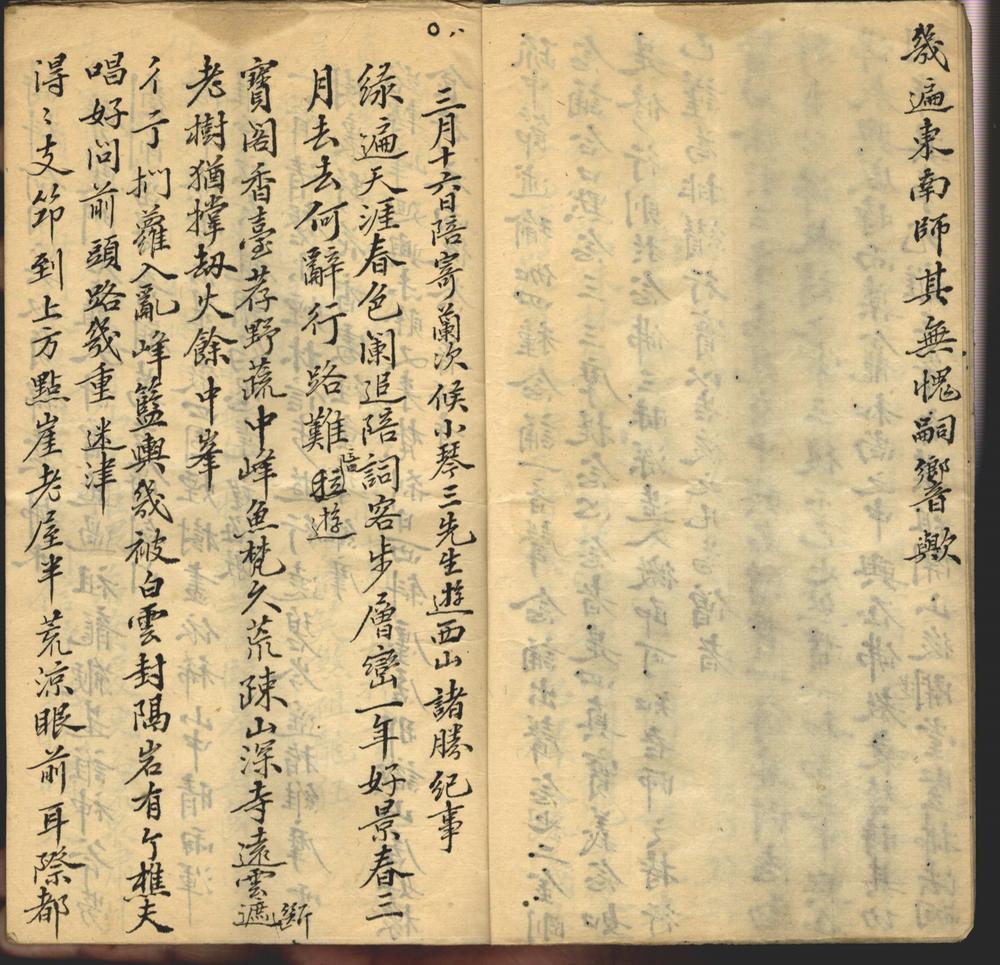 幾遍東南師其無愧嗣響歟
三月十六日陪寄蘭次候小琴三先生遊西山諸勝紀事
綠遍天涯春色闌追陪詞客步層巒一年好景春三
月去去何辭行路難 陪遊
寶閣香臺荐野蔬中峰魚梵久荒疎山深寺遠雲遮斷
老樹猶撐劫火餘 中峯
彳亍捫蘿入亂峰籃輿幾被白雲封隔岩有个樵夫
唱好問前頭路幾重 迷津
得〻支笻到上方點崖老屋半荒涼眼前耳際都